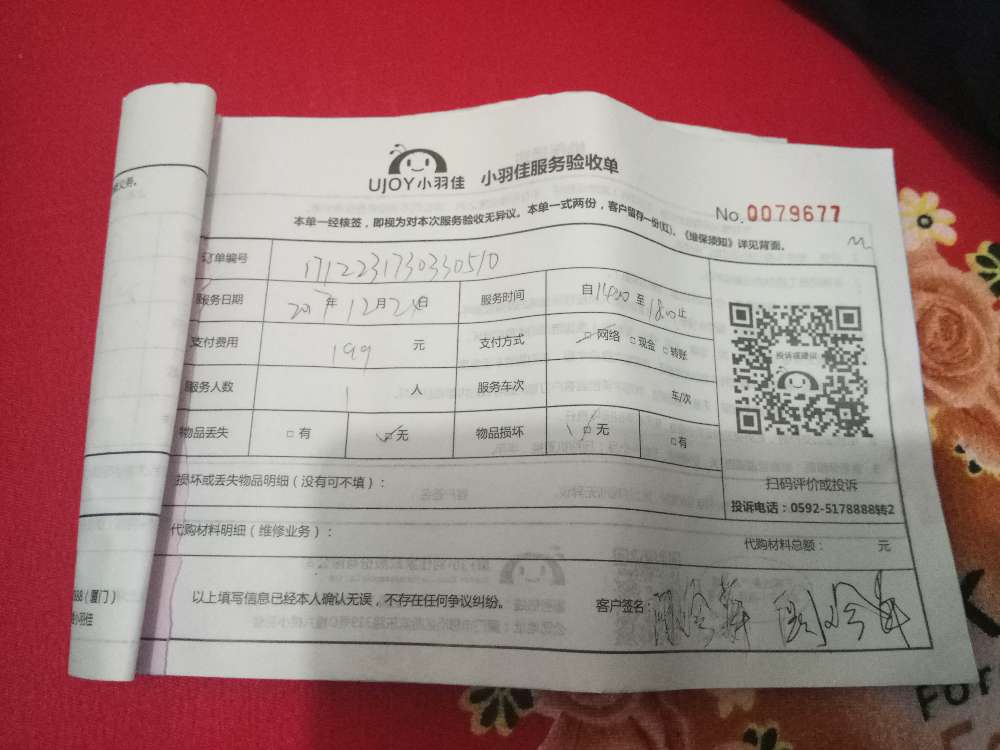 UJOY小羽佳 小羽佳服务验收单
No.0079677
本单一经核签，即视为对本次服务验收无异议。本单一式两份，客户留存一份(红)、《维保须知》详见背面。
订单编号 1712231730330510
服务日期 2017年12月24日 服务时间 自14:00至18:00止
支付费用 199元 支付方式 □网络 □现金 □转账
服务人数 1人 服务车次 车/次
物品丢失 □有 □无 物品损坏 □无 □有
投诉或建议
扫码评价或投诉
投诉电话：0592-5178888转2
损坏或丢失物品明细（没有可不填）：
代购材料明细（维修业务）：
代购材料总额： 元
以上填写信息已经本人确认无误，不存在任何争议纠纷。 客户签名：
（厦门）
小羽佳